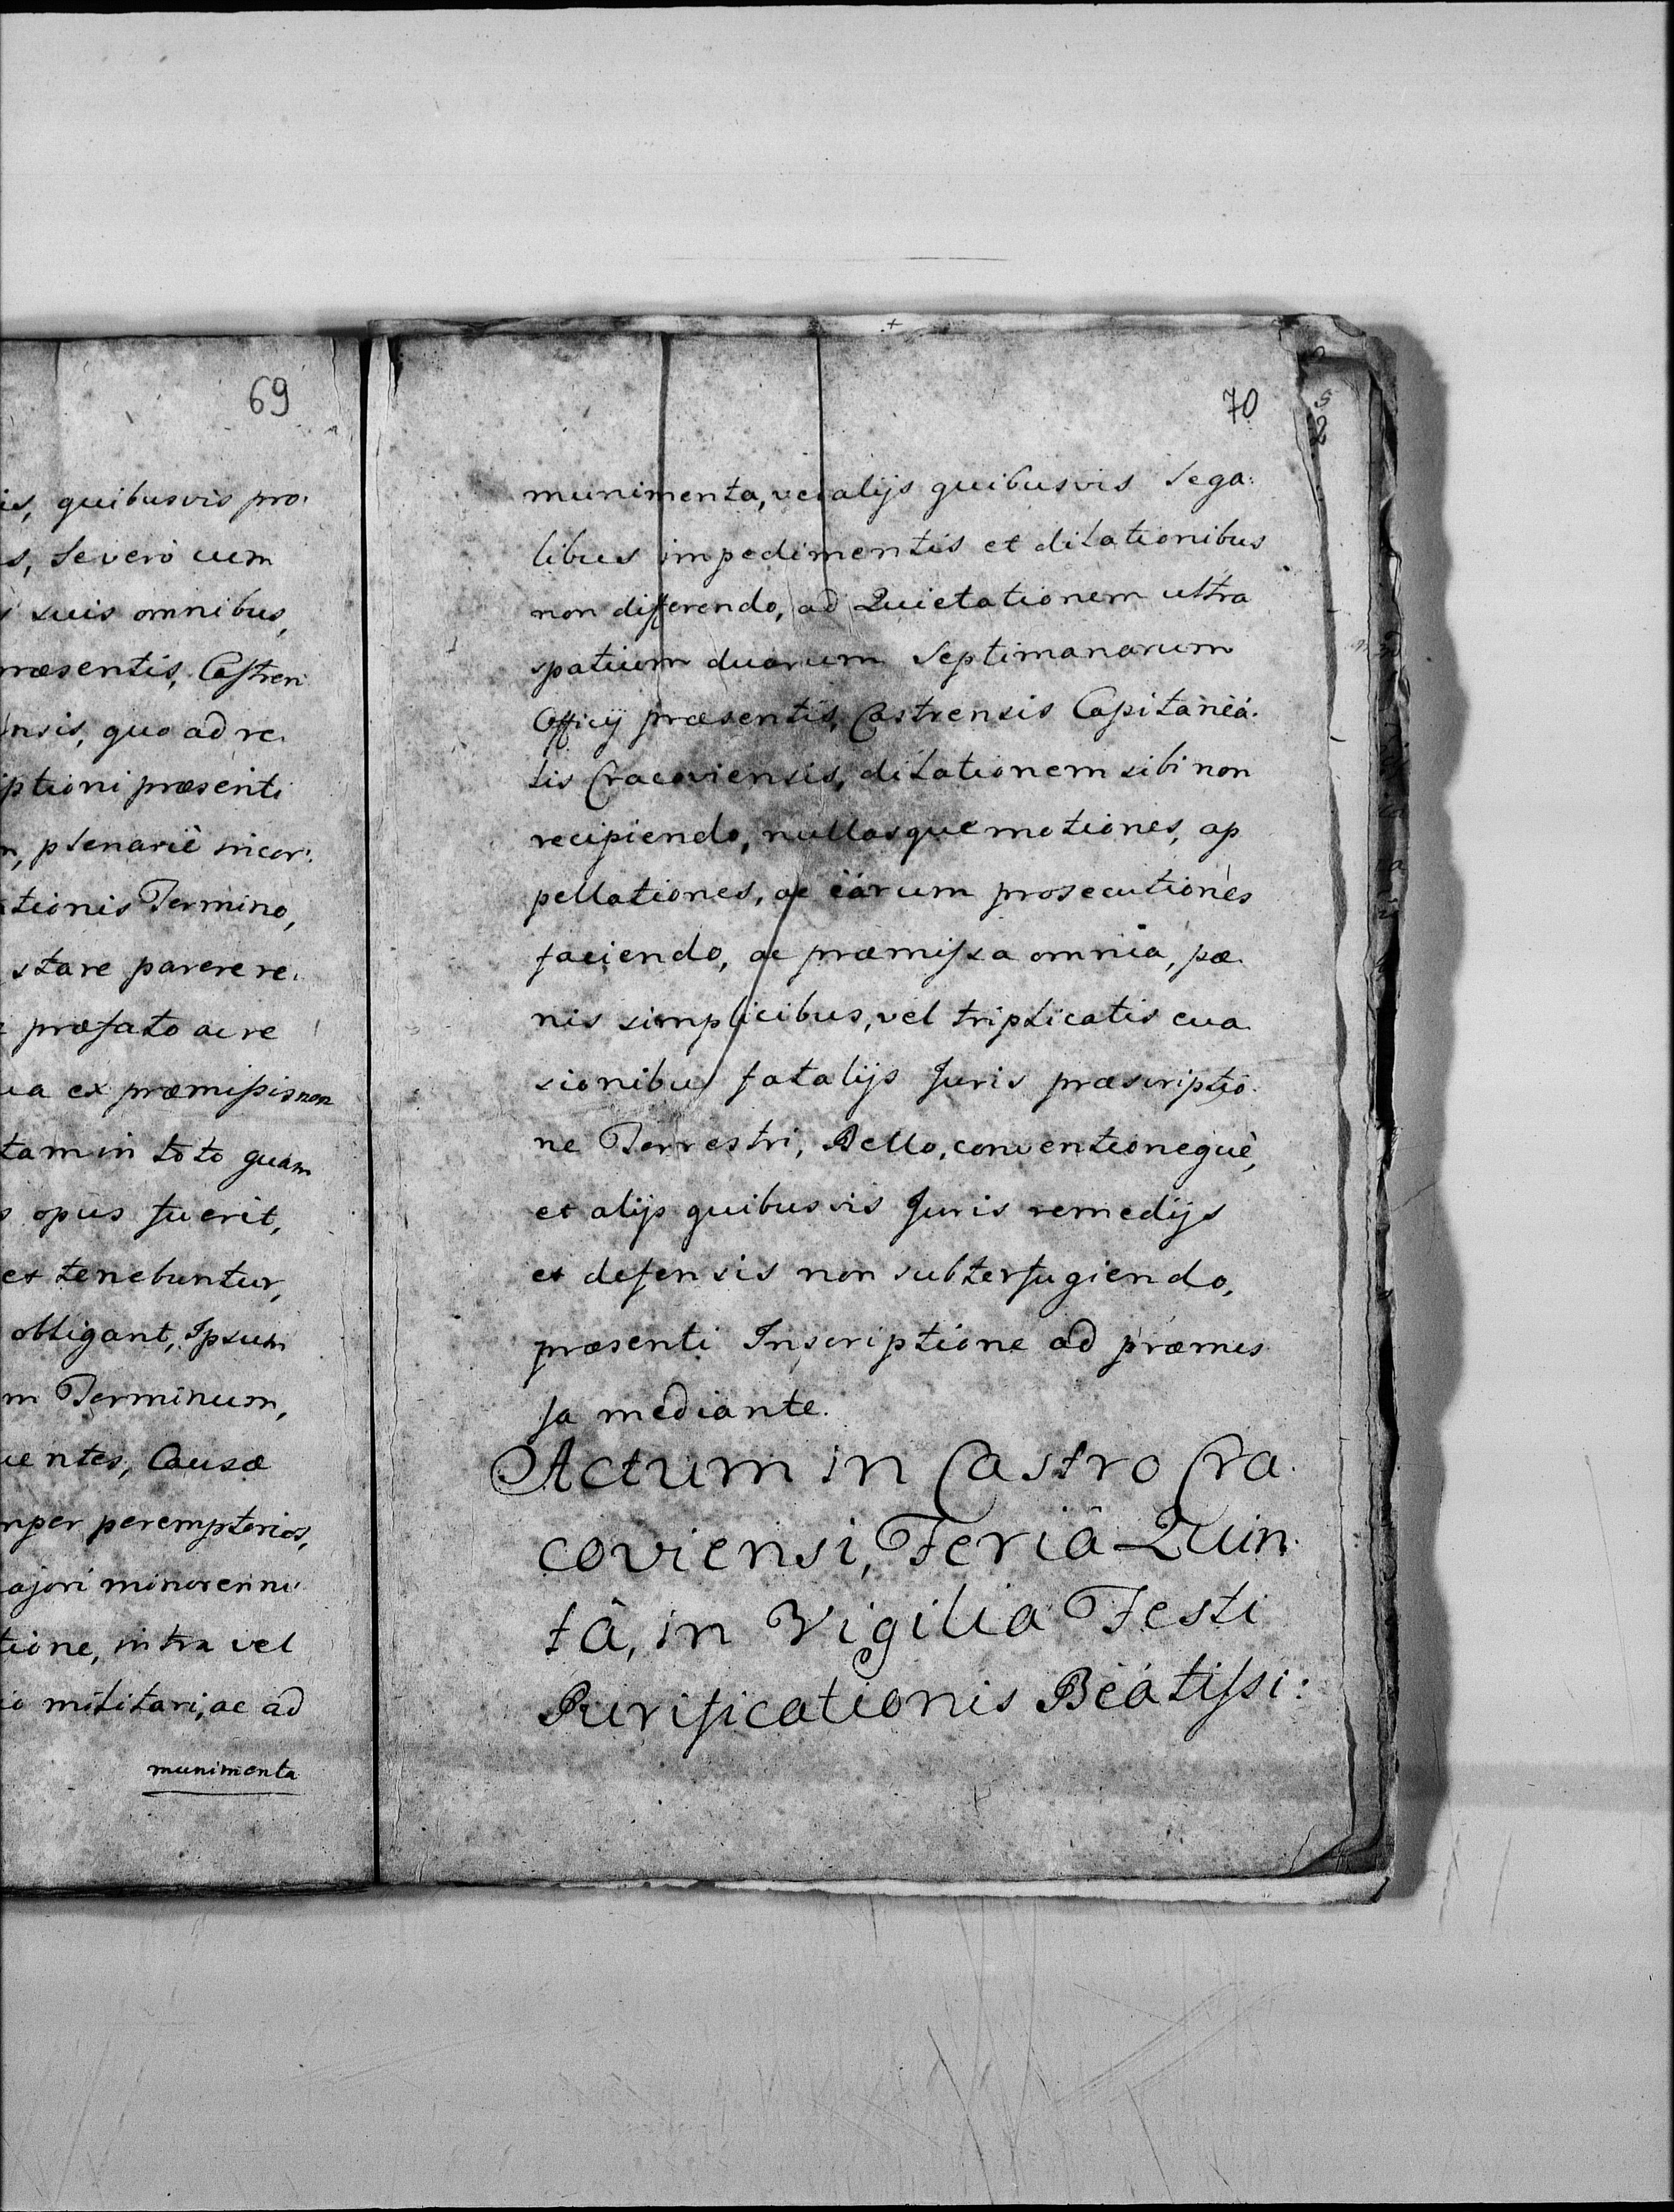 69
is, quibusvis pro:
s, Severò cum
suis omnibus,
præsentis, Castren
nsis, quo ad re.
ptioni præsenti
plenariè incor:
tionis Termino,
stare parere re.
præfato ac re
ua ex præmissis non
tam in toto quam
s opus fuerit,
et tenebuntur,
obligant, Ipsum
m Terminum,
uentes, Causæ
mper peremptorios,
ajori minorenni
tione, intra vel
io militari, ac ad
munimenta
70
munimenta, vel alijs quibusvis Lega:
libus impedimentis et dilationibus
non differendo, ad Quietationem ultra
spatium duarum Septimanarum
Officij præsentis, Castrensis Capitanëa:
lis Cracoviensis, dilationem sibi non
recipiendo, nullasque motiones, ap
pellationes, ac ëarum prosecutiones
faciendo, ac præmissa omnia, pæ
nis simplicibus, vel triplicatis eva
sionibus fatalijs Juris præscriptio
ne Terrestri, Bello, conventioneque,
et alijs quibusvis Juris remedijs
et defensis non subterfugiendo,
præsenti Inscriptione ad præmis
sa mediante.
Actum in Castro Cra
coviensi, Feriâ Quin
tâ, in Vigilia Festi
Purificationis Bëatissi: